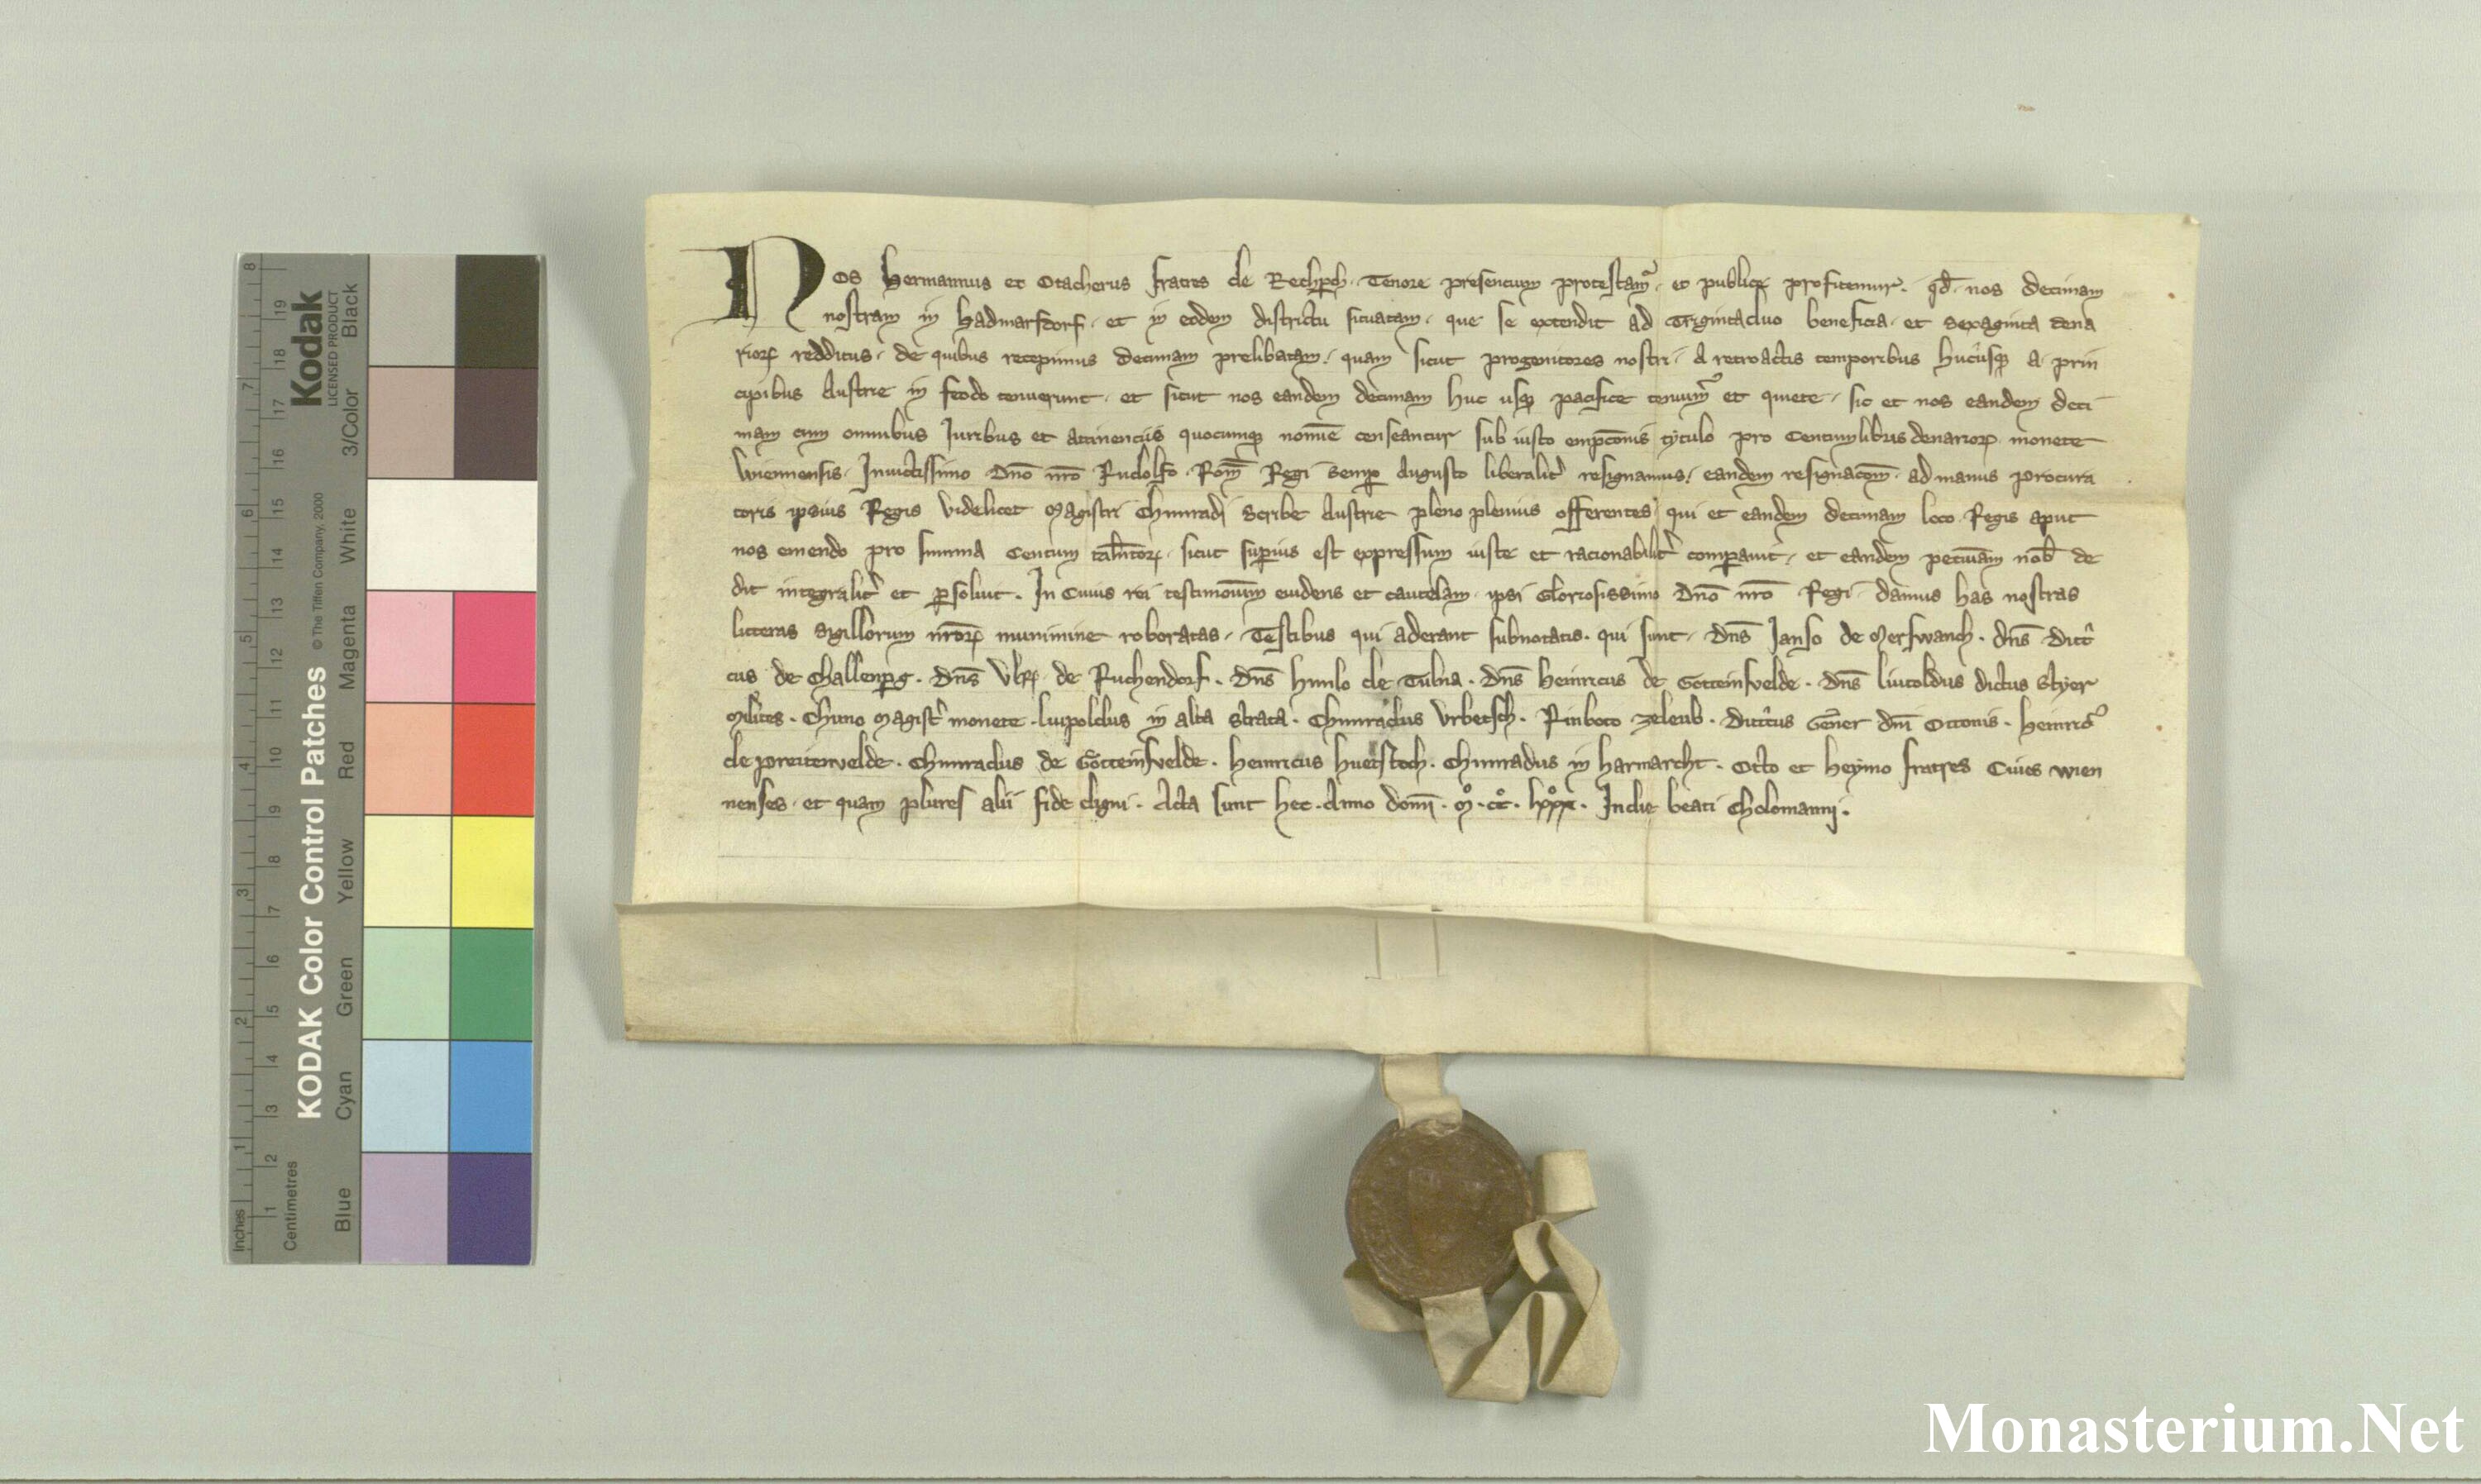 Nos Hermannus et Otacherus fratres de Rechperch. Tenore presencium protestamur. et publice profitemur. qd nos decimam
nostram in Hadmarsdorf. et in eodem districtu sicuatam. que se extendit ad Trigintaduo beneficia. et sexaginta dena
riorum redditus. de quibus recepimus decimam prelibatam. quam sicut progenitores nostri. a retroactis temporibus hucusque a prin
cipibus Austrie in feodo tenuerunt. et sicut nos eandem decimam huc usque pacifice tenuimus et quiete. sic et nos eandem deci
mam cum omnibus Iuribus et attinenciis quocumque nomine censeantur sub iusto empconis tytulo pro Centum libris denariorum monete
Wiennensis. Inuictissimo dno nro Rudolfo. Rom Regi semper Augusto liberaliter resignamus. eandem resignacom. ad manus procura
toris ipsius Regis videlicet Magistri Chunradi Scribe Austrie pleno plenius offerentes. qui et eandem decimam loco Regis aput
nos emendo pro summa Centum talentorum. sicut superius est expressum iuste et racionabiliter comparauit. et eandem pecuniam nob de
dit integraliter et persoluit. In Cuius rei testimonium euidens et cautelam ipsi Gloriosissimo dno nro Regi damus has nostras
litteras sigillorum nrorum munimine roboratas. Testibus qui aderant subnotatis. qui sunt. dns Janso de Merswanch. dns Ditri
cus de Challenperg. dns Ulr de Ruchendorf. dns Hunlo de Tulna. dns Heinricus de Gotteinsvelde. dns Liutoldus dictus Styer
Milites. Chuno Magister monete. Luipoldus in alta Strata. Chunradus Urbetsch. Rinboto Zeleub. Ditricus Gener dni Ottonis. Heinricus
de Preitenvelde. Chunradus de Gotteinsvelde. Heinricus Huetstoch. Chunradus in Harmarcht. Otto et Heymo fratres Ciues Wien
nenses. et quam plures alii fide digni. Acta sunt hec. Anno domi. M°. cc°. lxxx°. In die beati Cholomanni.
Kodak
LICENSED PRODUCT
KODAK Color Control Patches
© The Tiffen Company, 2000
Black
3/Color
White
Magenta
Red
Yellow
Green
Cyan
Blue
Inches
1
2
3
4
5
6
7
8
Centimetres
1
2
3
4
5
6
7
8
9
10
11
12
13
14
15
16
17
18
19
Monasterium.Net